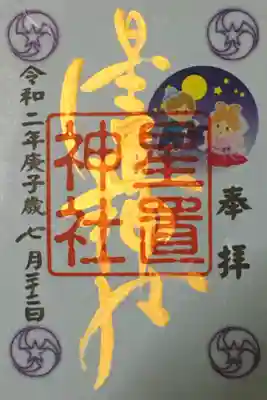 奉拝
星置神社
星置神社
令和二年庚子歳七月二十二日